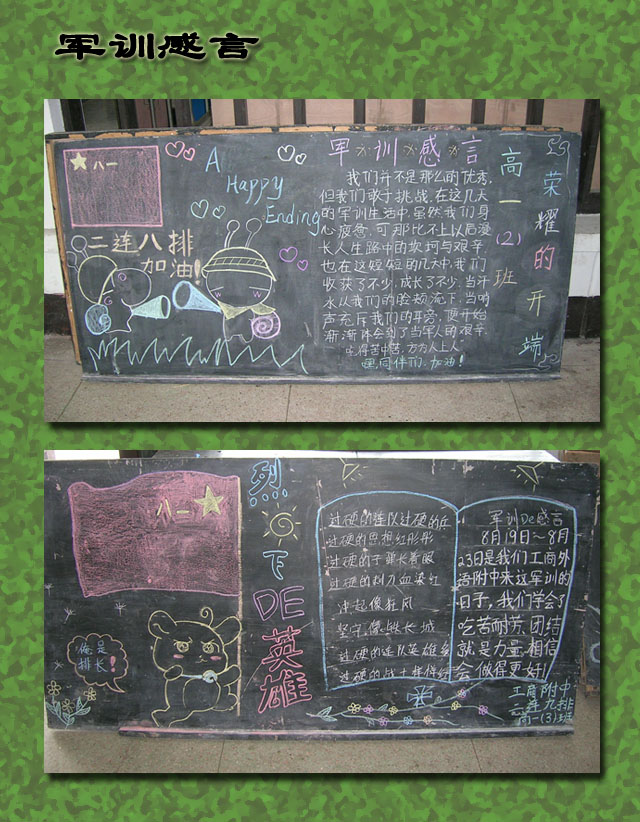 军训感言
八一
A
Happy
Ending
二连八排
加油!
军训感言
我们并不是那么的优秀,
但我们敢于挑战,在这几天
的军训生活中,虽然我们身
心疲惫,可那比不上以后漫
长人生路中的坎坷与艰辛,
也在这短短的几天中,我们
收获了不少,成长了不少,当汗
水从我们的脸颊流下,当哨
声充斥我们的耳旁,便开始
渐渐体会到了当军人的艰辛,
"吃得苦中苦,方为人上人"
同伴们,加油!
高一(2)班
荣耀的开端
八一
烈日下DE英雄
俺是
排长!
过硬的连队过硬的兵
过硬的思想红彤彤
过硬的子弹长着眼
过硬的刺刀血染红
冲起像狂风
坚守像长城
过硬的连队英雄多
过硬的战士样样红
军训De感言
8月19日~8月
23日是我们工商外
语附中来这军训的
日子,我们学会了
吃苦耐劳,团结
就是力量,相信
会做得更好!
工商附中
二连九排
高一(3)班